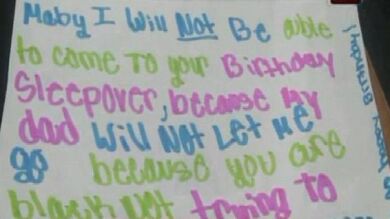 Maby I Will Not Be able
to come to your Birthday
Sleepover, because my
dad Will Not Let me
go because you are
black Not trying to
Birthday!